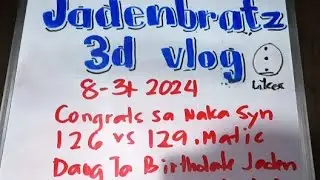 Jadenbratz
3d vlog
Likes
8-31 2024
Congrats sa Naka Syn
126 vs 129.Matic
Dang Ta Birthdate Jaden